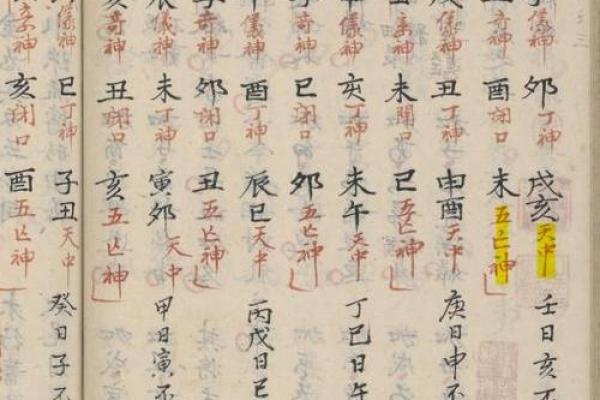 儀神 卯 丁神 戌亥 天中 壬日亥不
奇神 酉 閉口 未 五亡神
戌 儀神 丑 丁神 申酉 天中 庚日申不
奇神 未 閉口 巳 五亡神
儀神 亥 丁神 未午 天中 丁巳日午
奇神 巳 閉口 卯 五亡神
儀神 酉 丁神 辰巳 天中 丙戌日巳
子 奇神 卯 閉口 丑 五亡神
辰 儀神 未 丁神 寅卯 天中 甲日寅不
亥 奇神 丑 閉口 亥 五亡神
儀神 巳 丁神 子丑 天中 癸日子不
奇神 亥 閉口 酉 五亡神